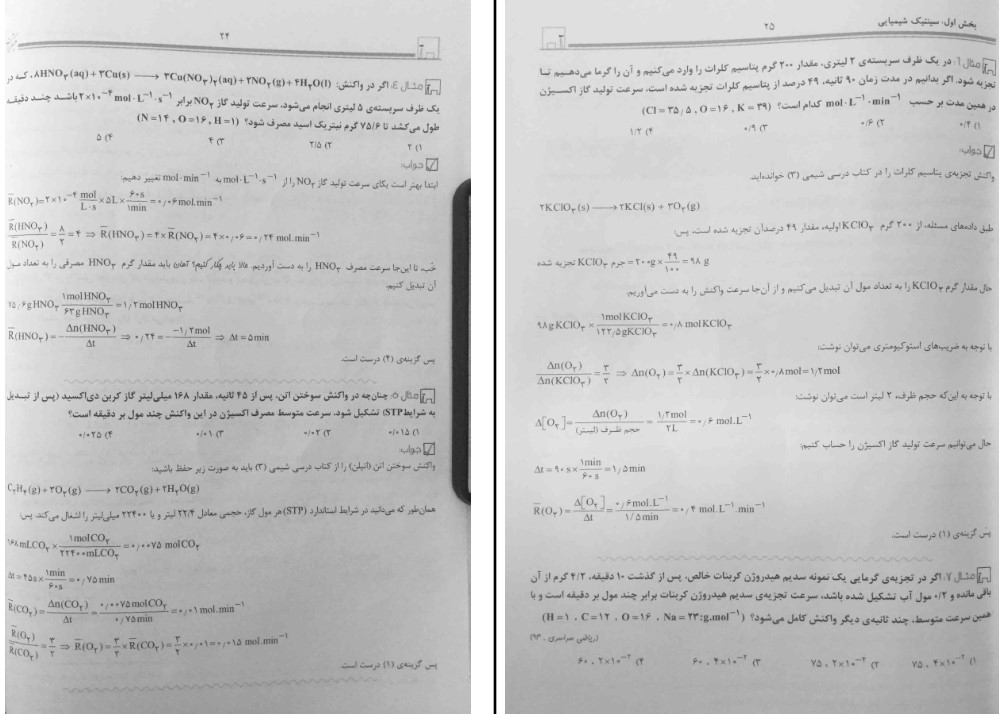 ۲۴
مثال ۴. اگر در واکنش: ۸HNO۳(aq) + ۳Cu(s) ⟶ ۳Cu(NO۳)۲(aq) + ۲NO۲(g) + ۴H۲O(l)، که در
یک ظرف سربسته‌ی ۵ لیتری انجام می‌شود، سرعت تولید گاز NO۲ برابر ۲×۱۰⁻⁴ mol·L⁻¹·s⁻¹ باشد چند دقیقه
طول می‌کشد تا ۷۵/۶ گرم نیتریک اسید مصرف شود؟ (N=۱۴ , O=۱۶ , H=۱)
۱) ۲ ۲) ۲/۵ ۳) ۴ ۴) ۵
جواب:
ابتدا بهتر است یکای سرعت تولید گاز NO۲ را از mol·L⁻¹·s⁻¹ به mol·min⁻¹ تغییر دهیم:
R̄(NO۲) = ۲×۱۰⁻⁴ mol/L·s × ۵L × ۶۰s/۱min = ۰/۰۶ mol.min⁻¹
R̄(HNO۳)/R̄(NO۲) = ۸/۲ = ۴ ⇒ R̄(HNO۳) = ۴×R̄(NO۲) = ۴×۰/۰۶ = ۰/۲۴ mol.min⁻¹
خب، تا این‌جا سرعت مصرف HNO۳ را به دست آوردیم. حالا باید چکار کنیم؟ آهان باید مقدار گرم HNO۳ مصرفی را به تعداد مول
آن تبدیل کنیم.
۷۵/۶g HNO۳ × ۱mol HNO۳/۶۳g HNO۳ = ۱/۲ mol HNO۳
R̄(HNO۳) = −Δn(HNO۳)/Δt ⇒ ۰/۲۴ = −۱/۲mol/Δt ⇒ Δt = ۵min
پس گزینه‌ی (۴) درست است.
مثال ۵. چنان‌چه در واکنش سوختن اتن، پس از ۴۵ ثانیه، مقدار ۱۶۸ میلی‌لیتر گاز کربن دی‌اکسید (پس از تبدیل
به شرایط STP) تشکیل شود، سرعت متوسط مصرف اکسیژن در این واکنش چند مول بر دقیقه است؟
۱) ۰/۰۱۵ ۲) ۰/۰۲ ۳) ۰/۰۱ ۴) ۰/۰۲۵
جواب:
واکنش سوختن اتن (اتیلن) را از کتاب درسی شیمی (۳) باید به صورت زیر حفظ باشید:
C۲H۴(g) + ۳O۲(g) ⟶ ۲CO۲(g) + ۲H۲O(g)
همان‌طور که می‌دانید در شرایط استاندارد (STP) هر مول گاز، حجمی معادل ۲۲/۴ لیتر و یا ۲۲۴۰۰ میلی‌لیتر را اشغال می‌کند. پس:
۱۶۸mLCO۲ × ۱molCO۲/۲۲۴۰۰mLCO۲ = ۰/۰۰۷۵ molCO۲
Δt = ۴۵s × ۱min/۶۰s = ۰/۷۵min
R̄(CO۲) = Δn(CO۲)/Δt = ۰/۰۰۷۵molCO۲/۰/۷۵min = ۰/۰۱ mol.min⁻¹
R̄(O۲)/R̄(CO۲) = ۳/۲ ⇒ R̄(O۲) = ۳/۲ × R̄(CO۲) = ۳/۲ × ۰/۰۱ = ۰/۰۱۵ mol.min⁻¹
پس گزینه‌ی (۱) درست است.
بخش اول، سینتیک شیمیایی
۲۵
مثال ۶. در یک ظرف سربسته‌ی ۲ لیتری، مقدار ۲۰۰ گرم پتاسیم کلرات را وارد می‌کنیم و آن را گرما می‌دهیم تا
تجزیه شود. اگر بدانیم در مدت زمان ۹۰ ثانیه، ۴۹ درصد از پتاسیم کلرات تجزیه شده است، سرعت تولید گاز اکسیژن
در همین مدت بر حسب mol·L⁻¹·min⁻¹ کدام است؟ (Cl=۳۵/۵ , O=۱۶ , K=۳۹)
۱) ۰/۴ ۲) ۰/۶ ۳) ۰/۹ ۴) ۱/۲
جواب:
واکنش تجزیه‌ی پتاسیم کلرات را در کتاب درسی شیمی (۳) خوانده‌اید.
۲KClO۳(s) ⟶ ۲KCl(s) + ۳O۲(g)
طبق داده‌های مسئله، از ۲۰۰ گرم KClO۳ اولیه، مقدار ۴۹ درصدآن تجزیه شده است، پس:
جرم KClO۳ تجزیه شده = ۲۰۰g × ۴۹/۱۰۰ = ۹۸ g
حال مقدار گرم KClO۳ را به تعداد مول آن تبدیل می‌کنیم و از آن‌جا سرعت واکنش را به دست می‌آوریم.
۹۸gKClO۳ × ۱molKClO۳/۱۲۲/۵gKClO۳ = ۰/۸ molKClO۳
با توجه به ضریب‌های استوکیومتری می‌توان نوشت:
Δn(O۲)/Δn(KClO۳) = ۳/۲ ⇒ Δn(O۲) = ۳/۲ × Δn(KClO۳) = ۳/۲ × ۰/۸mol = ۱/۲mol
با توجه به این‌که حجم ظرف، ۲ لیتر است می‌توان نوشت:
Δ[O۲] = Δn(O۲)/حجم ظرف (لیتر) = ۱/۲mol/۲L = ۰/۶ mol.L⁻¹
حال می‌توانیم سرعت تولید گاز اکسیژن را حساب کنیم:
Δt = ۹۰s × ۱min/۶۰s = ۱/۵min
R̄(O۲) = Δ[O۲]/Δt = ۰/۶mol.L⁻¹/۱/۵min = ۰/۴ mol.L⁻¹.min⁻¹
پس گزینه‌ی (۱) درست است.
مثال ۷. اگر در تجزیه‌ی گرمایی یک نمونه سدیم هیدروژن کربنات خالص، پس از گذشت ۱۰ دقیقه، ۴/۲ گرم از آن
باقی مانده و ۰/۲ مول آب تشکیل شده باشد، سرعت تجزیه‌ی سدیم هیدروژن کربنات برابر چند مول بر دقیقه است و با
همین سرعت متوسط، چند ثانیه‌ی دیگر واکنش کامل می‌شود؟ (H=۱ , C=۱۲ , O=۱۶ , Na=۲۳:g.mol⁻¹)
(ریاضی سراسری ۹۳)
۱) ۴×۱۰⁻² ، ۷۵ ۲) ۲×۱۰⁻² ، ۷۵ ۳) ۴×۱۰⁻² ، ۶۰ ۴) ۲×۱۰⁻² ، ۶۰